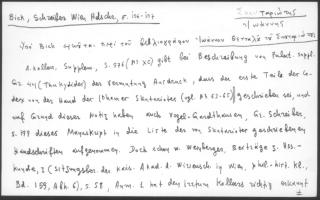 Bick, Schreiber Wien. Hdsche., σ. 126-127
Σκουταριώτης
Ἰωάννης
Ὁ Bick περὶ τοῦ βιβλιογράφου Ἰωάννου Σκουταριώτου
A. Kollar, Supplem., S. 576 gibt bei Beschreibung von Palat. suppl.
Gr. 41 (Thukydides) der Vermutung Ausdruck, dass der erste Teil des Co-
dex von der Hand des Johannes Skutariotes (vgl. 63-65) geschrieben sei, und
auf Grund dieser Notiz haben auch Vogel-Gardthausen, Gr. Schreiber,
S. 199 dieses Manuskript in die Liste der von Skutariotes geschriebenen
Handschriften aufgenommen. Doch schon W. Weinberger, Beiträge z. Hss.-
kunde, I (Sitzungsber. der kais. Akad. d. Wissensch. in Wien, phil.-hist. Kl.,
Bd. 159, Abh. 6), S. 58, Anm. 1 hat den Irrtum Kollars richtig erkannt